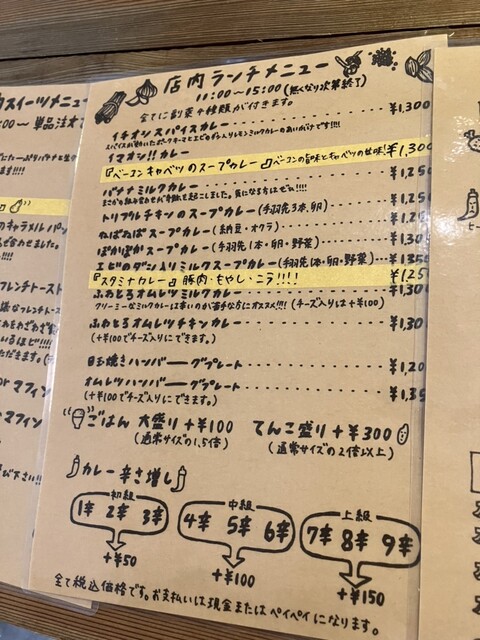 店内ランチメニュー
11:00〜15:00(無くなり次第終了)
全てに副菜4種類が付きます。
イチオシスパイスカレー ¥1,300
イマオシ!!カレー
『ベーコンキャベツのスープカレー』ベーコンの旨味とキャベツの甘味! ¥1,300
バナナミルクカレー ¥1,25
まさかの組み合わせが奇跡を起こしました。気になる方はぜひ!!!!
トリプルチキンのスープカレー(手羽先3本,卵) ¥1,25
ねばねばスープカレー(納豆・オクラ) ¥1,2
ぽかぽかスープカレー(手羽先1本・卵・野菜) ¥1,30
エビのダシ入りミルクスープカレー(手羽先1本・卵・野菜) ¥1,350
『スタミナカレー』豚肉・もやし・ニラ!!!! ¥1,25
ふわとろオムレツミルクカレー ¥1,30
クリーミーなミルクカレーは辛いのが苦手な方にオススメ!!!!(チーズ入りは+¥100)
ふわとろオムレツチキンカレー ¥1,30
(+¥100でチーズ入りにできます。)
目玉焼きハンバーグプレート ¥1,20
オムレツハンバーグプレート ¥1,35
(+¥100でチーズ入りにできます。)
ごはん 大盛り+¥100 てんこ盛り+¥300
(通常サイズの1.5倍) (通常サイズの2倍以上)
カレー辛さ増し
初級 中級 上級
1辛 2辛 3辛 4辛 5辛 6辛 7辛 8辛 9辛
+¥50 +¥100 +¥150
全て税込価格です。お支払いは現金またはペイペイになります。
スイーツメニュー
単品注文
のキャラメルバナ
フレンチトースト
マフィン
マフィン